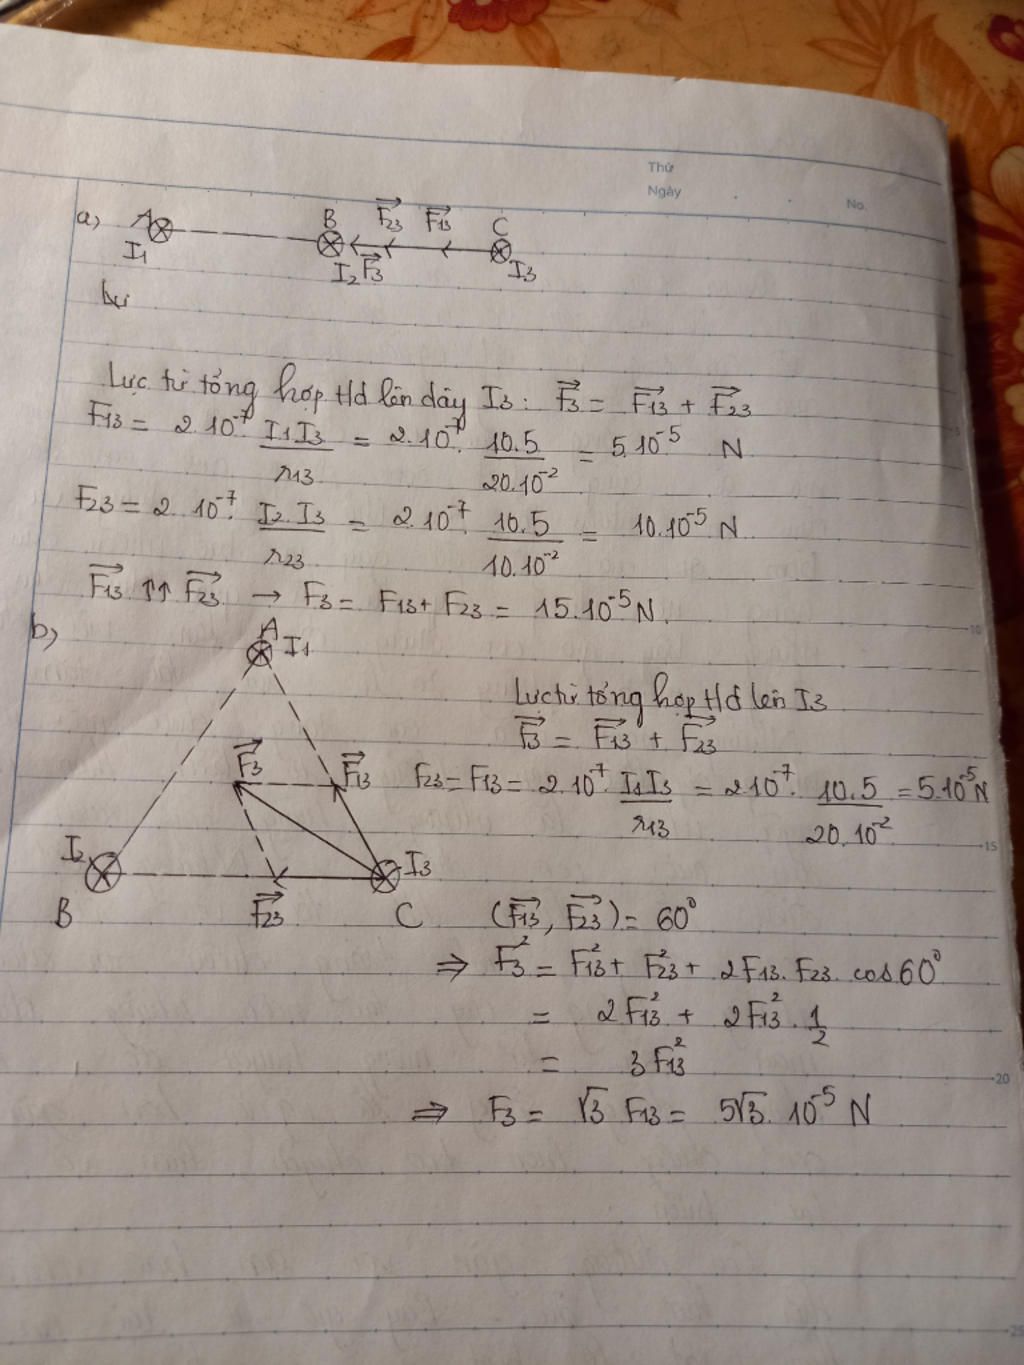 Thứ
Ngày
No.
a, A B F₂₃ F₁₃ C
I₁ I₂ F₃ I₃
Lực từ tổng hợp td lên dây I₃ : F₃ = F₁₃ + F₂₃
F₁₃ = 2.10⁻⁷. I₁I₃/r₁₃ = 2.10⁻⁷. 10.5/20.10⁻² = 5.10⁻⁵ N
F₂₃ = 2.10⁻⁷. I₂.I₃/r₂₃ = 2.10⁻⁷. 10.5/10.10⁻² = 10.10⁻⁵ N
F₁₃ ↑↑ F₂₃ → F₃ = F₁₃ + F₂₃ = 15.10⁻⁵ N.
10
b, A I₁
Lực từ tổng hợp td lên I₃
F₃ = F₁₃ + F₂₃
F₃ F₁₃
F₂₃ = F₁₃ = 2.10⁻⁷. I₁I₃/r₁₃ = 2.10⁻⁷. 10.5/20.10⁻² = 5.10⁻⁵ N
15
I₂ I₃
B F₂₃ C
(F₁₃, F₂₃) = 60⁰
⇒ F₃² = F₁₃² + F₂₃² + 2F₁₃.F₂₃.cos60⁰
= 2F₁₃² + 2F₁₃².1/2
= 3F₁₃²
20
⇒ F₃ = √3 F₁₃ = 5√3.10⁻⁵ N
25